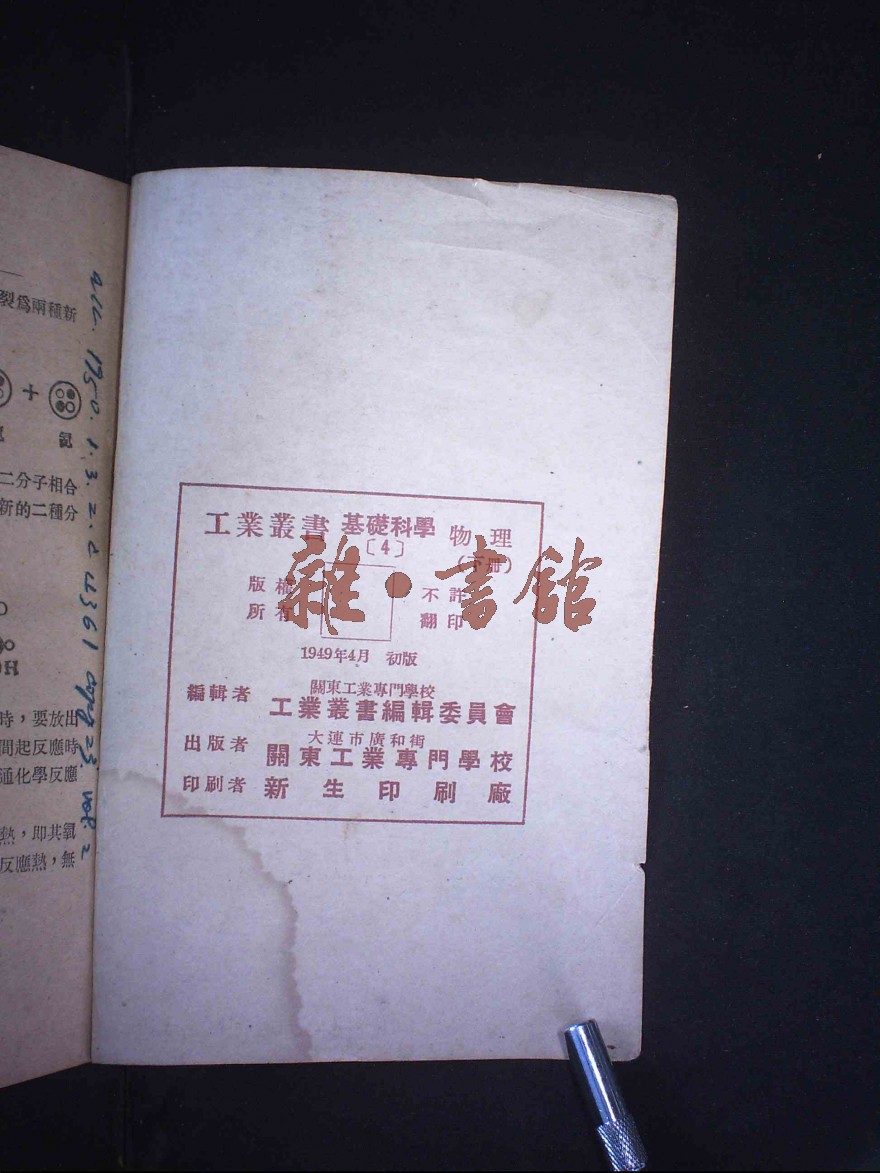 裂爲兩種新
+
二分子相合
新的二種分
時，要放出
間起反應時
通化學反應
熱，即其氣
反應熱，無
acc. 1950. 1. 3. 2. c 4361 copy 23 vol. 2
工業叢書 基礎科學 物理
〔4〕
(下册)
版權 不許
所有 翻印
雜·書館
1949年4月 初版
編輯者 關東工業專門學校
工業叢書編輯委員會
出版者 大連市廣和街
關東工業專門學校
印刷者 新生印刷廠